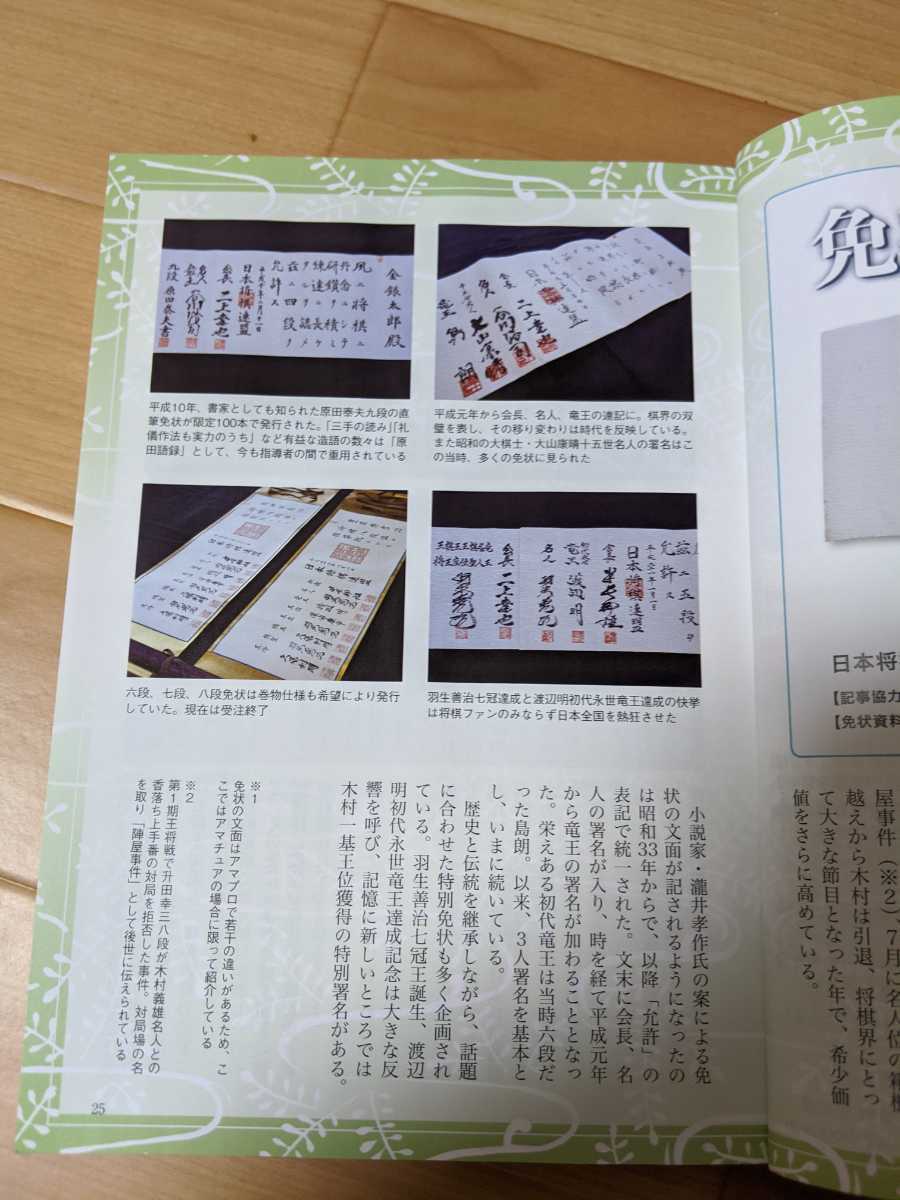 金銀太郎殿
夙ニ将棋ニ
丹念ニシテ
研鑽ヲ積ミ
練達ニ長ケ
タルヲ認メ
茲ニ四段ヲ
允許ス
日本将棋連盟
会長 二上達也
名人
九段 原田泰夫書
平成10年、書家としても知られた原田泰夫九段の直
筆免状が限定100本で発行された。「三手の読み」「礼
儀作法も実力のうち」など有益な造語の数々は「原
田語録」として、今も指導者の間で重用されている
日本将棋連盟
会長 二上達也
名人 谷川浩司
大山康晴
竜王 島朗
平成元年から会長、名人、竜王の連記に。棋界の双
璧を表し、その移り変わりは時代を反映している。
また昭和の大棋士・大山康晴十五世名人の署名はこ
の当時、多くの免状に見られた
日本将棋連盟
六段、七段、八段免状は巻物仕様も希望により発行
していた。現在は受注終了
茲ニ五段ヲ
允許ス
日本将棋連盟
会長 米長邦雄
竜王 渡辺明
名人 羽生善治
会長 二上達也
羽生善治七冠達成と渡辺明初代永世竜王達成の快挙
は将棋ファンのみならず日本全国を熱狂させた
免
日本将
【記事協力
【免状資料
屋事件(※2)、7月に名人位の
越えから木村は引退、将棋界にとっ
て大きな節目となった年で、希少価
値をさらに高めている。
小説家・瀧井孝作氏の案による免
状の文面が記されるようになったの
は昭和33年からで、以降「允許」の
表記で統一された。文末に会長、名
人の署名が入り、時を経て平成元年
から竜王の署名が加わることとなっ
た。栄えある初代竜王は当時六段だ
った島朗。以来、3人署名を基本と
し、いまに続いている。
歴史と伝統を継承しながら、話題
に合わせた特別免状も多く企画され
ている。羽生善治七冠王誕生、渡辺
明初代永世竜王達成記念は大きな反
響を呼び、記憶に新しいところでは
木村一基王位獲得の特別署名がある。
※1
免状の文面はアマプロで若干の違いがあるため、こ
こではアマチュアの場合に限って紹介している
※2
第1期王将戦で升田幸三八段が木村義雄名人との
香落ち上手番の対局を拒否した事件。対局場の名
を取り「陣屋事件」として後世に伝えられている
25